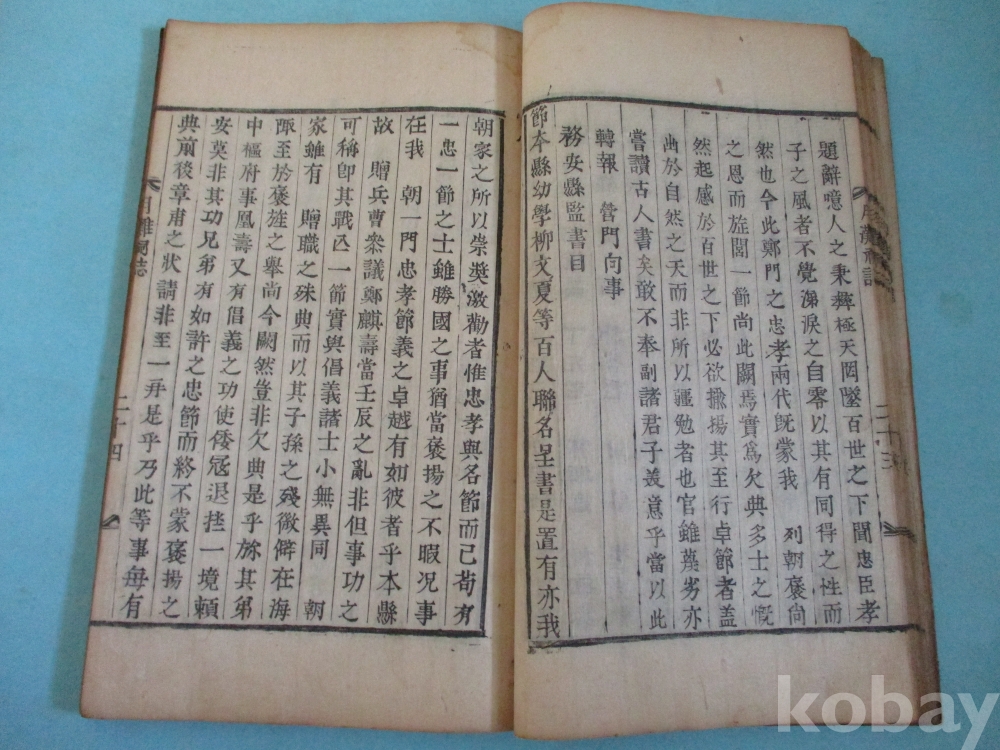 題辭噫人之秉彝極天罔墜百世之下聞忠臣孝
子之風者不覺涕淚之自零以其有同得之性而
然也今此鄭門之忠孝兩代旣蒙我 列朝褒尙
之恩而旌閭一節尙此闕焉實爲欠典多士之慨
然起感於百世之下必欲揄揚其至行卓節者盖
出於自然之天而非所以彊勉者也官雖蔑劣亦
嘗讀古人書矣敢不奉副諸君子義意乎當以此
轉報 營門向事
務安縣監書目
節本縣幼學柳文夏等百人聯名呈書是置有亦我
朝家之所以崇奬激勸者惟忠孝與名節而已苟有
一忠一節之士雖勝國之事猶當褒揚之不暇况事
在我 朝一門忠孝節義之卓越有如彼者乎本縣
故 贈兵曹叅議鄭麒壽當壬辰之亂非但事功之
可稱卽其戰亾一節實與倡義諸士小無異同 朝
家雖有 贈職之殊典而以其子孫之殘微僻在海
陬至於褒旌之擧尙今闕然豈非欠典是乎旀其弟
中樞府事凰壽又有倡義之功使倭冦退挫一境賴
安莫非其功兄弟有如許之忠節而終不蒙褒揚之
典前後章甫之狀請非至一再是乎乃此等事每有
祠誌
二十四
二十三
kobay